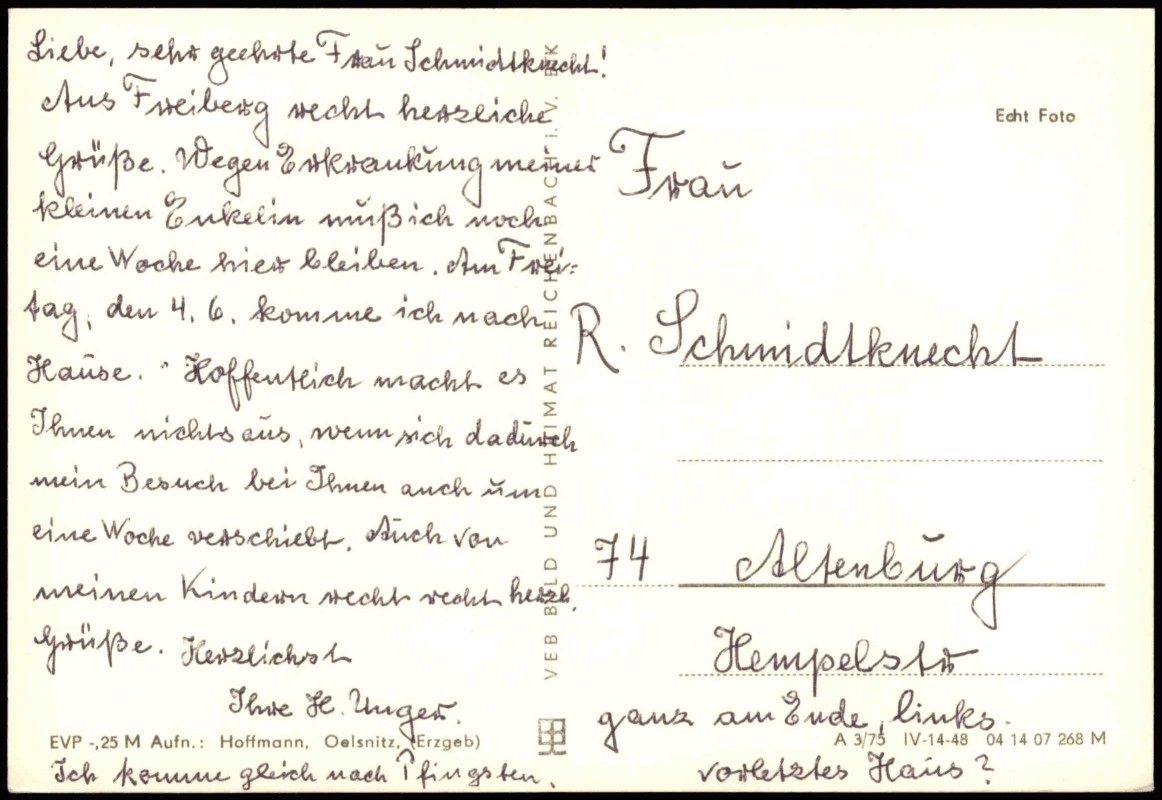 Liebe, sehr geehrte Frau Schmidtknecht!
Aus Freiberg recht herzliche
Grüße. Wegen Erkrankung meiner
kleinen Enkelin muß ich noch
eine Woche hier bleiben. Am Frei-
tag, den 4. 6. komme ich nach
Hause. Hoffentlich macht es
Ihnen nichts aus, wenn sich dadurch
mein Besuch bei Ihnen auch um
eine Woche verschiebt. Auch von
meinen Kindern recht recht herzl.
Grüße. Herzlichst
Ihre H. Unger.
EVP -,25 M Aufn.: Hoffmann, Oelsnitz, (Erzgeb)
Ich komme gleich nach Pfingsten.
VEB BILD UND HEIMAT REICHENBACH i. V. BK
Echt Foto
Frau
R. Schmidtknecht
74 Altenburg
Hempelstr
ganz am Ende, links.
A 3/75 IV-14-48 04 14 07 268 M
vorletztes Haus?